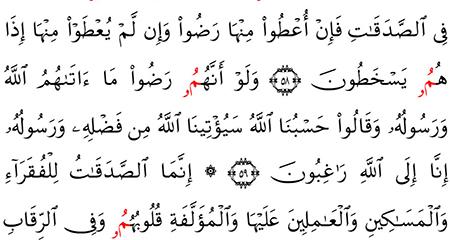 فِي ٱلصَّدَقَٰتِ فَإِنۡ أُعۡطُواْ مِنۡهَا رَضُواْ وَإِن لَّمۡ يُعۡطَوۡاْ مِنۡهَا إِذَا
هُمُۥ يَسۡخَطُونَ ۝٥٨ وَلَوۡ أَنَّهُمُۥ رَضُواْ مَا ءَاتَىٰهُمُ ٱللَّهُ
وَرَسُولُهُۥ وَقَالُواْ حَسۡبُنَا ٱللَّهُ سَيُؤۡتِينَا ٱللَّهُ مِن فَضۡلِهِۦ وَرَسُولُهُۥ
إِنَّا إِلَى ٱللَّهِ رَٰغِبُونَ ۝٥٩ ۞ إِنَّمَا ٱلصَّدَقَٰتُ لِلۡفُقَرَآءِ
وَٱلۡمَسَٰكِينِ وَٱلۡعَٰمِلِينَ عَلَيۡهَا وَٱلۡمُؤَلَّفَةِ قُلُوبُهُمُۥ وَفِي ٱلرِّقَابِ